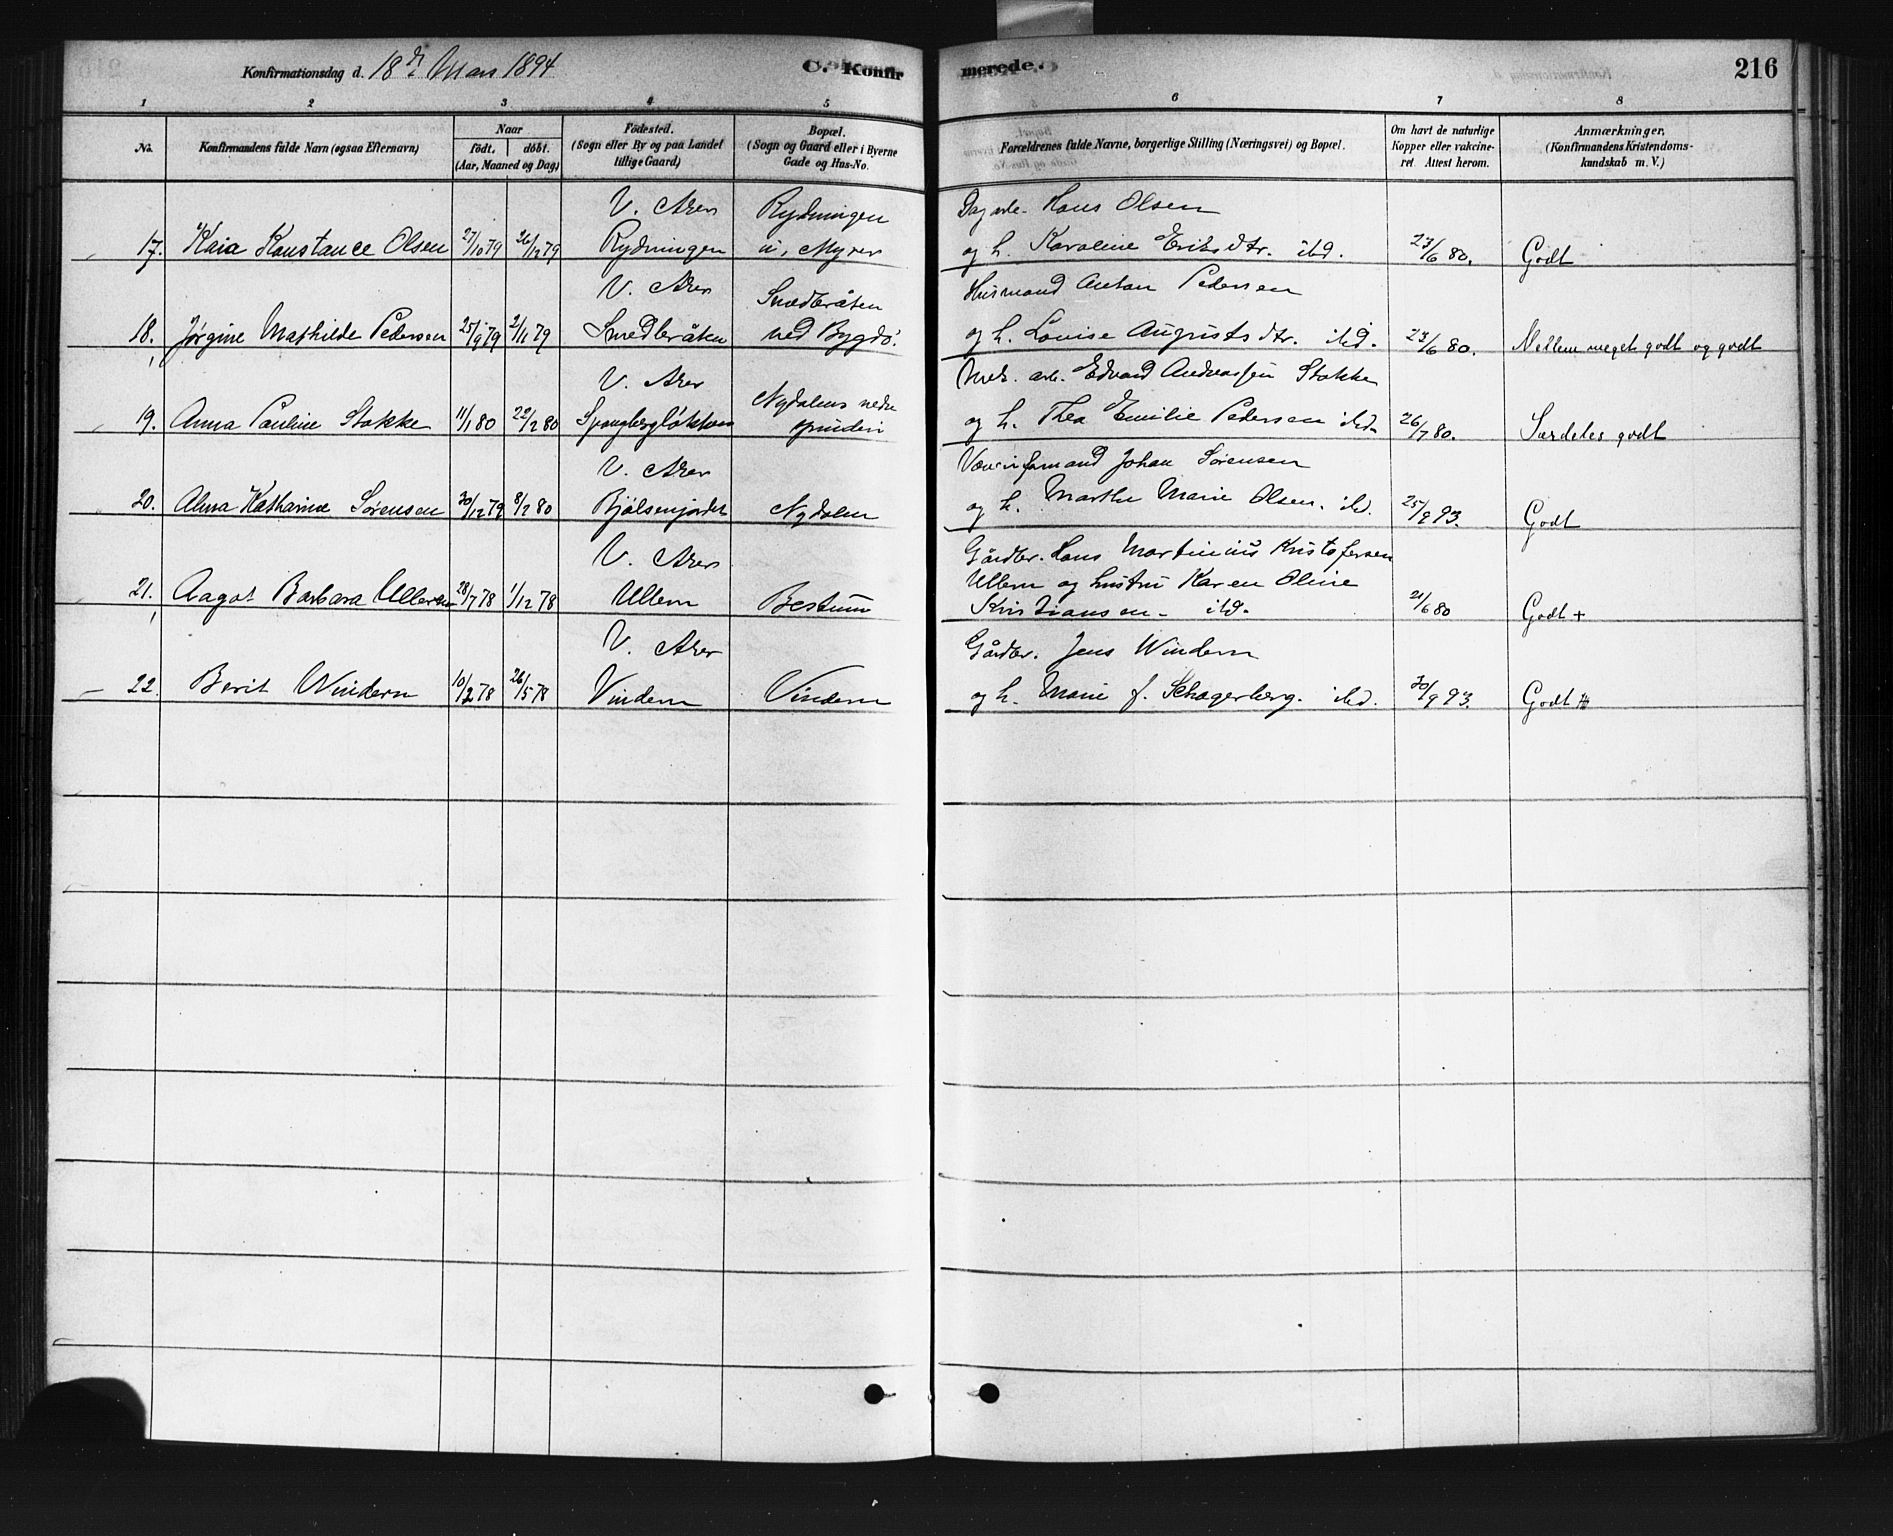 Konfirmationsdag d. 18de Mars 1894 C. Konfirmerede. 216
1 2 3 4 5 6 7 8
No. Konfirmandens fulde Navn (ogsaa Efternavn) Naar født. døbt. (Aar, Maaned og Dag) Fødested. (Sogn eller By og paa Landet tillige Gaard) Bopæl. (Sogn og Gaard eller i Byerne Gade og Hus-No. Forældrenes fulde Navne, borgerlige Stilling (Næringsvei) og Bopæl. Om havt de naturlige Kopper eller vakcineret. Attest herom. Anmærkninger, (Konfirmandens Kristendomskundskab m. V.)
V. Aker Rydningen Dagarb. Hans Olsen
17. Kaia Konstance Olsen 27/10 79 26/12 79 Rydningen u. Myrer og h. Karoline Eriksdtr. ibd. 23/6 80. Godt
V. Aker Smedbråten Husmand Anton Pedersen
18. Jørgine Mathilde Pedersen 25/9 79 2/11 79 Smedbråten ved Bygdø. og h. Lovise Augustsdtr. ibd. 23/6 80. Mellem meget godt og godt
V. Aker Nydalens nedre Mek. arb. Edvard Andreassen Stokke
19. Anna Pauline Stokke 11/1 80 22/2 80 Spangbergløkken spinderi og h. Thea Emilie Pedersen ibd. 26/7 80. Særdeles godt
V. Aker Johan Sørensen
20. Alma Katharine Sørensen 30/12 79 8/2 80 Bjølsenjordet Nydalen og h. Marthe Marie Olsen. ibd. 25/9 93. Godt
V. Aker Gårdbr. Hans Martinius Kristofersen
21. Aagot Barbara Ullern 28/7 78 1/12 78 Ullern Bestum Ullern og hustru Karen Oline
Kristiansen - ibd. 21/6 80 Godt +
V. Aker Gårdbr. Jens Windern
22. Berit Windern 10/2 78 26/5 78 Vindern Vindern og h. Marie f. Schagerberg. ibd. 30/9 93. Godt